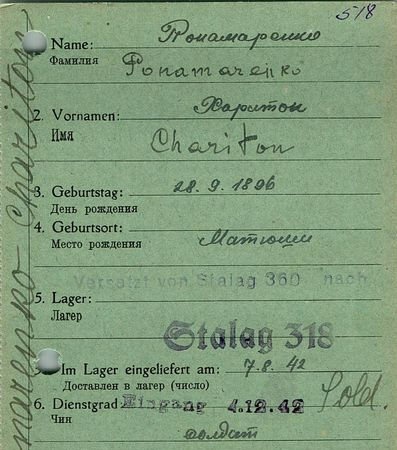 518
Name: Понамаренко
Фамилия Ponamarenko
2. Vornamen: Харитон
Имя Chariton
3. Geburtstag: 28. 9. 1896
День рождения
4. Geburtsort:
Место рождения Матюши
Versetzt von Stalag 360 nach
5. Lager:
Лагер Stalag 318
Im Lager eingeliefert am: 7.8. 42
Доставлен в лагер (число)
6. Dienstgrad Eingang 4.12.42 Sold.
Чин солдат
narenko Chariton